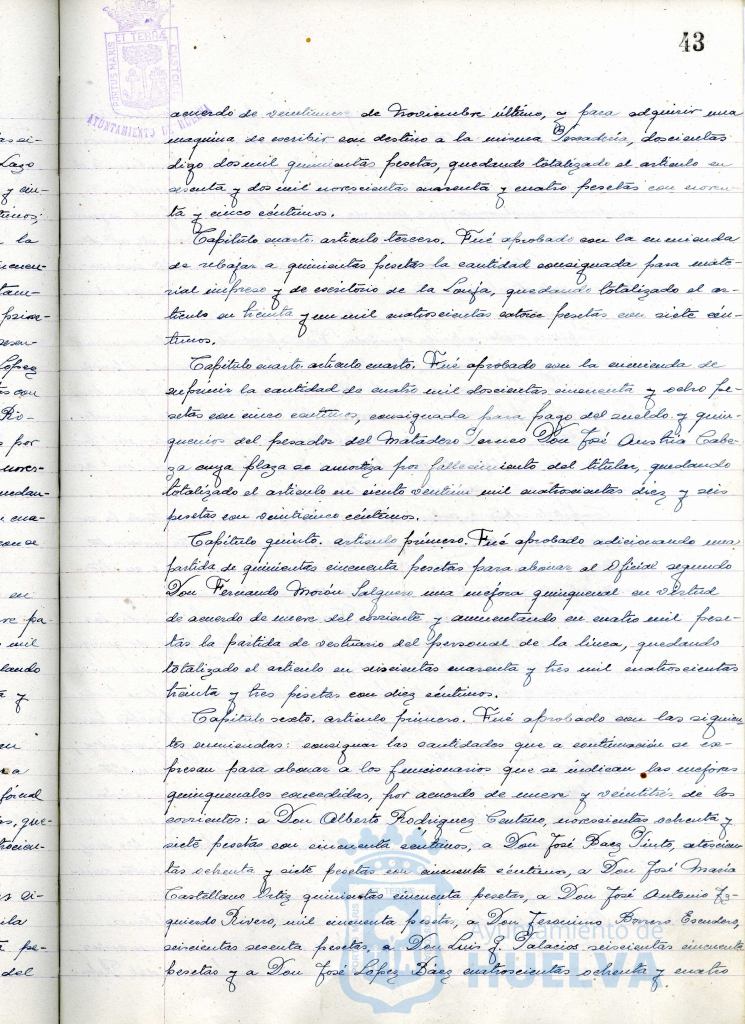 43
PORTUS MARIS ET TERRAE CUSTODIA
AYUNTAMIENTO DE HUELVA
acuerdo de veintinueve de Noviembre último, y para adquirir una
maquina de escribir con destino a la misma Tesorería, doscientas
digo dos mil quinientas pesetas, quedando totalizado el articulo en
sesenta y dos mil novescientas cuarenta y cuatro pesetas con noven-
ta y cinco céntimos.
Capitulo cuarto. articulo tercero. Fué aprobado con la enmienda
de rebajar a quinientas pesetas la cantidad consignada para mate-
rial impreso y de escritorio de la Lonja, quedando totalizado el ar-
ticulo en treinta y un mil cuatroscientas catorce pesetas con siete cén-
timos.
Capitulo cuarto. articulo cuarto. Fué aprobado con la enmienda de
suprimir la cantidad de cuatro mil doscientas cincuenta y ocho pe-
setas con cinco centimos, consignada para pago del sueldo y quin-
quenios del pesador del Matadero Don José Austria Cabe-
za cuya plaza se amortiza por fallecimiento del titular, quedando
totalizado el articulo en ciento mil cuatroscientas diez y seis
pesetas con veinticinco céntimos.
Capítulo quinto. articulo primero. Fué aprobado adicionando una
partida de quinientas cincuenta pesetas para abonar al Oficial segundo
Don Fernando Morón Salguero una mejora quinquenal en virtud
de acuerdo de nueve del corriente y aumentando en cuatro mil pese-
tas la partida de vestuario del personal de la linea, quedando
totalizado el articulo en seiscientas cuarenta y tres mil cuatroscientas
treinta y tres pesetas con diez céntimos.
Capitulo sexto. articulo primero. Fué aprobado con las siguien-
tes enmiendas: consignar las cantidades que a continuación se ex-
presan para abonar a los funcionarios que se indican, las mejoras
quinquenales concedidas, por acuerdo de nueve y veintitrés de los
corrientes: a Don Alberto Rodríguez Centeno, novescientas ochenta y
siete pesetas con cincuenta céntimos, a Don José Baez Pinto, ochoscien-
tas ochenta y siete pesetas con cincuenta céntimos, a Don José María
Castellano Ortiz quinientas cincuenta pesetas, a Don José Antonio Iz-
quierdo Rivero, mil cincuenta pesetas, a Don Jeronimo Borrero Escudero,
seiscientas sesenta pesetas, a Don Luis G. Palacios seiscientas cincuenta
pesetas y a Don José Lopez Diaz cuatroscientas ochenta y cuatro
Ayuntamiento de
HUELVA